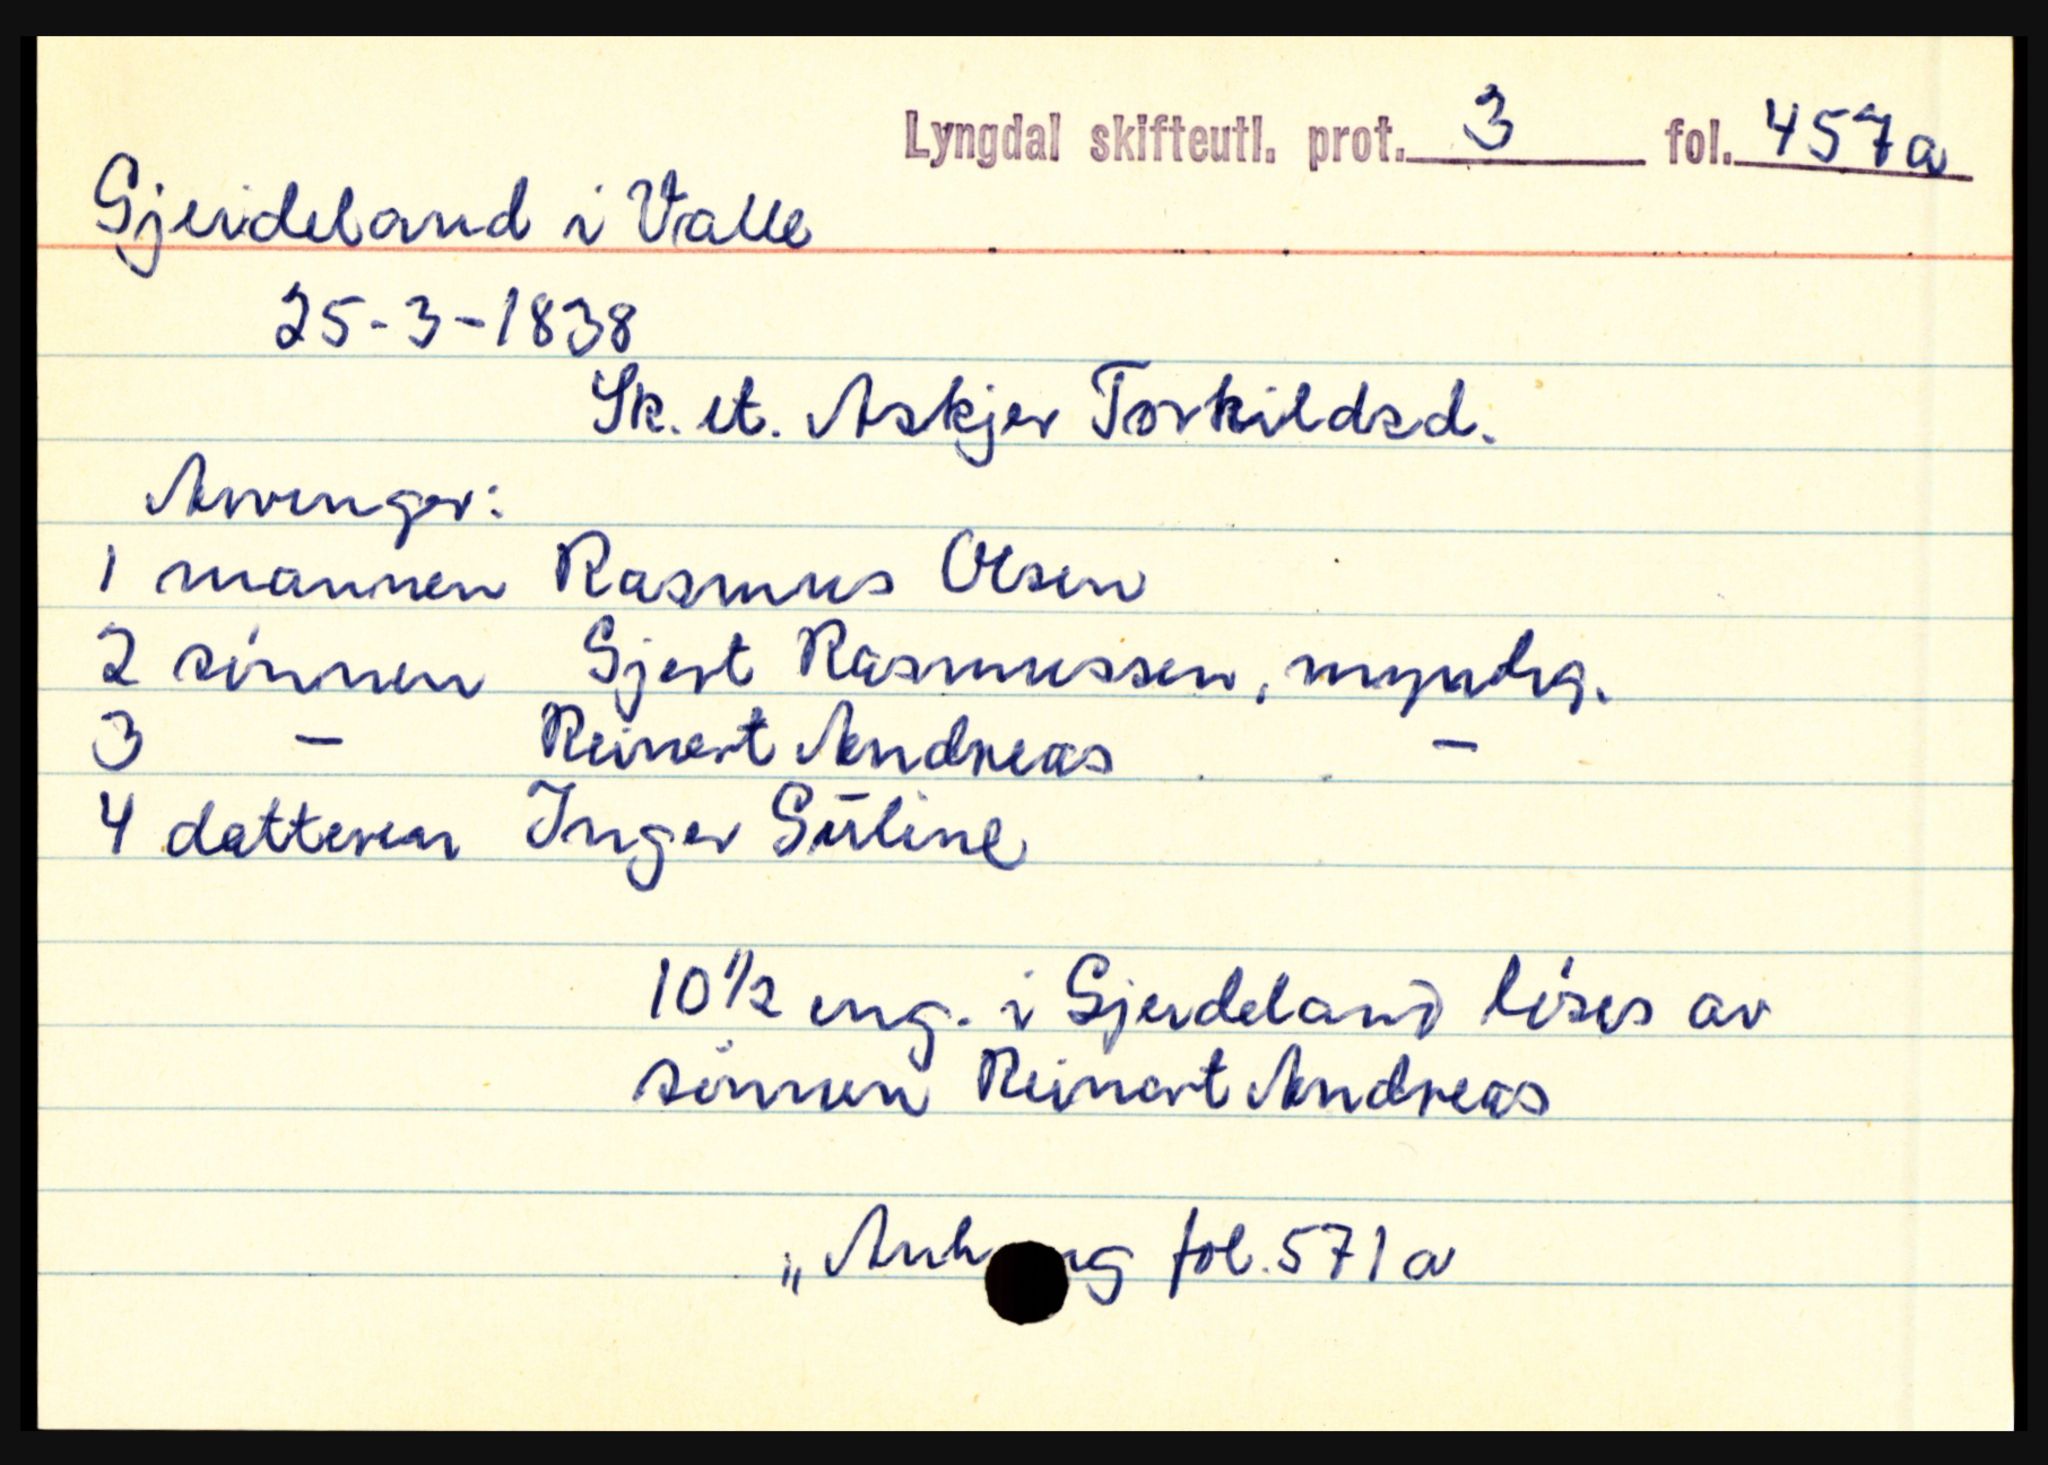 Lyngdal skifteutl. prot. 3 fol. 457a
Gjerdeland i Valle
25-3-1838
Sk. et. Askjer Torkildsd.
Arvinger:
1 mannen Rasmus Olsen
2 sönnen Gjert Rasmussen, myndig.
3 - Reinert Andreas -
4 datteren Inger Süline
10 1/2 eng. i Gjerdeland löses av
sönnen Reinert Andreas
„ Anhang fol. 571a